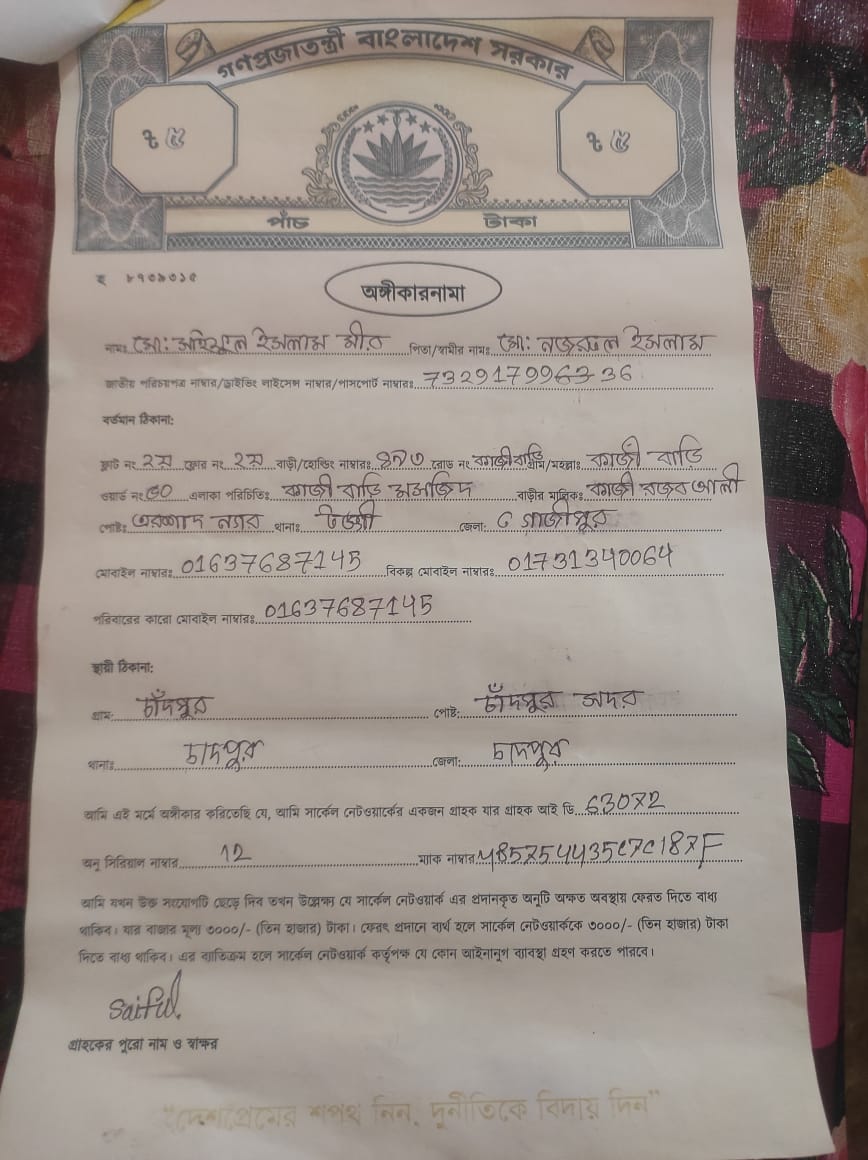 গণপ্রজাতন্ত্রী বাংলাদেশ সরকার
৳ ৫ ৳ ৫
পাঁচ টাকা
অঙ্গীকারনামা
নামঃ মো: সাইফুল ইসলাম মীর পিতা/স্বামীর নামঃ মো: নজরুল ইসলাম
জাতীয় পরিচয়পত্র নাম্বার/ড্রাইভিং লাইসেন্স নাম্বার/পাসপোর্ট নাম্বারঃ 7329179963 36
বর্তমান ঠিকানা:
ফ্লাট নং ২য় ফ্লোর নং ২য় বাড়ী/হোল্ডিং নাম্বারঃ রোড নং কাজী বাড়ি গ্রাম/মহল্লাঃ কাজী বাড়ি
ওয়ার্ড নং ৫০ এলাকা পরিচিতিঃ কাজী বাড়ি মসজিদ বাড়ীর মালিকঃ কাজী রজব আলী
পোষ্টঃ এরশাদ নগর থানাঃ টঙ্গী জেলা: গাজীপুর
মোবাইল নাম্বারঃ 01637687145 বিকল্প মোবাইল নাম্বারঃ 01731340064
পরিবারের কারো মোবাইল নাম্বারঃ 01637687145
স্থায়ী ঠিকানা:
গ্রাম: চাঁদপুর পোষ্ট: চাঁদপুর সদর
থানাঃ চাদপুর জেলা: চাদপুর
আমি এই মর্মে অঙ্গীকার করিতেছি যে, আমি সার্কেল নেটওয়ার্কের একজন গ্রাহক যার গ্রাহক আই ডি 63072
অনু সিরিয়াল নাম্বার 12 ম্যাক নাম্বার
আমি যখন উক্ত সংযোগটি ছেড়ে দিব তখন উল্লেক্ষ্য যে সার্কেল নেটওয়ার্ক এর প্রদানকৃত অনুটি অক্ষত অবস্থায় ফেরত দিতে বাধ্য
থাকিব। যার বাজার মূল্য ৩০০০/- (তিন হাজার) টাকা। ফেরৎ প্রদানে ব্যর্থ হলে সার্কেল নেটওয়ার্ককে ৩০০০/- (তিন হাজার) টাকা
দিতে বাধ্য থাকিব। এর ব্যতিক্রম হলে সার্কেল নেটওয়ার্ক কর্তৃপক্ষ যে কোন আইনানুগ ব্যাবস্থা গ্রহণ করতে পারবে।
Saiful.
গ্রাহকের পুরো নাম ও স্বাক্ষর
"দেশপ্রেমের শপথ নিন, দুর্নীতিকে বিদায় দিন"